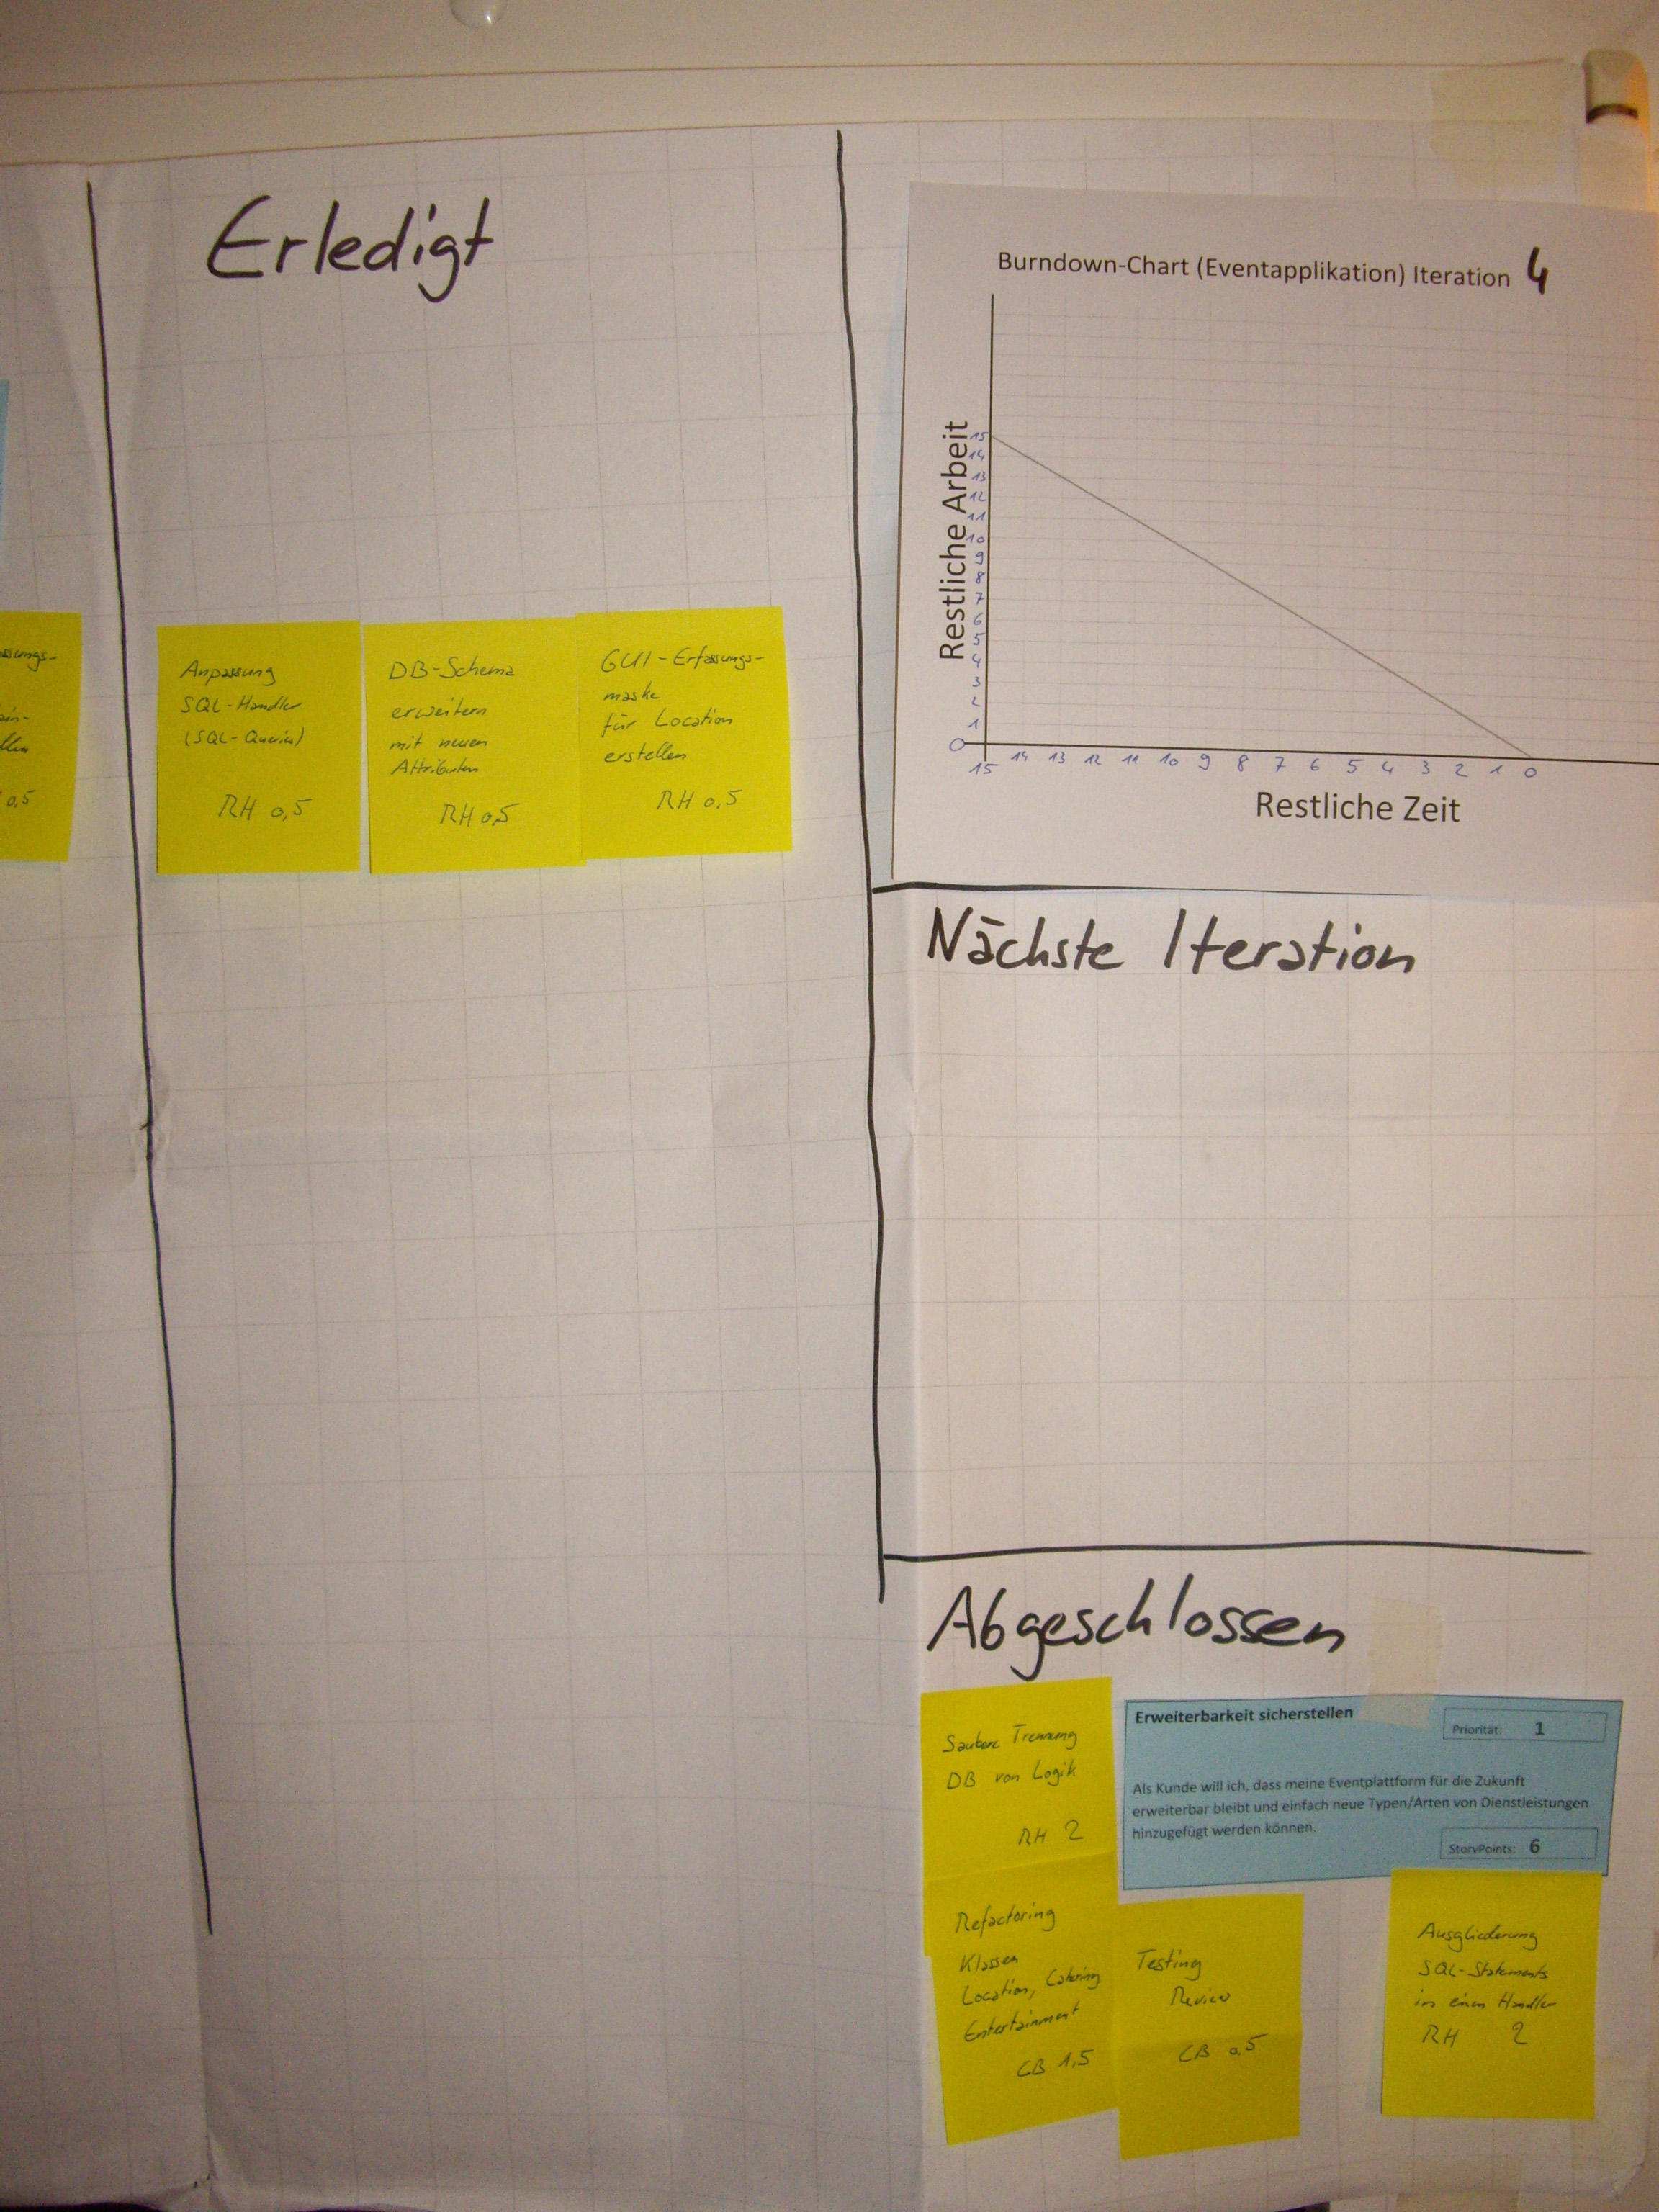 Erledigt
ssungs-
ain-
llen
0,5
Anpassung
SQL-Handler
(SQL-Queries)
RH 0,5
DB-Schema
erweitern
mit neuen
Attributen
RH 0,5
GUI-Erfassungs-
maske
für Location
erstellen
RH 0,5
Burndown-Chart (Eventapplikation) Iteration 4
Restliche Arbeit
15
14
13
12
11
10
9
8
7
6
5
4
3
2
1
0
15 14 13 12 11 10 9 8 7 6 5 4 3 2 1 0
Restliche Zeit
Nächste Iteration
Abgeschlossen
Saubere Trennung
DB von Logik
RH 2
Erweiterbarkeit sicherstellen
Priorität: 1
Als Kunde will ich, dass meine Eventplattform für die Zukunft
erweiterbar bleibt und einfach neue Typen/Arten von Dienstleistungen
hinzugefügt werden können.
StoryPoints: 6
Refactoring
Klassen
Location, Catering
Entertainment
CB 1,5
Testing
Review
CB 0,5
Ausgliederung
SQL-Statements
in einen Handler
RH 2